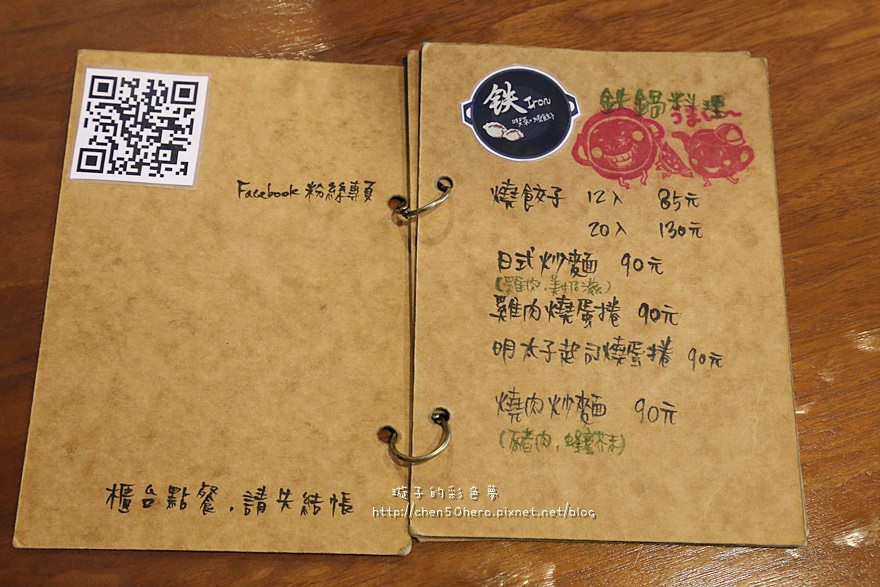 Facebook 粉絲專頁
櫃台點餐.請先結帳
铁 Iron
鉄鍋料理
うまい~
燒餃子 12入 85元
20入 130元
日式炒麵 90元
雞肉燒蛋捲 90元
明太子起司燒蛋捲 90元
燒肉炒麵 90元
(豬肉,蜂蜜芥末)
璇子的彩色夢
http://chen50hero.pixnet.net/blog